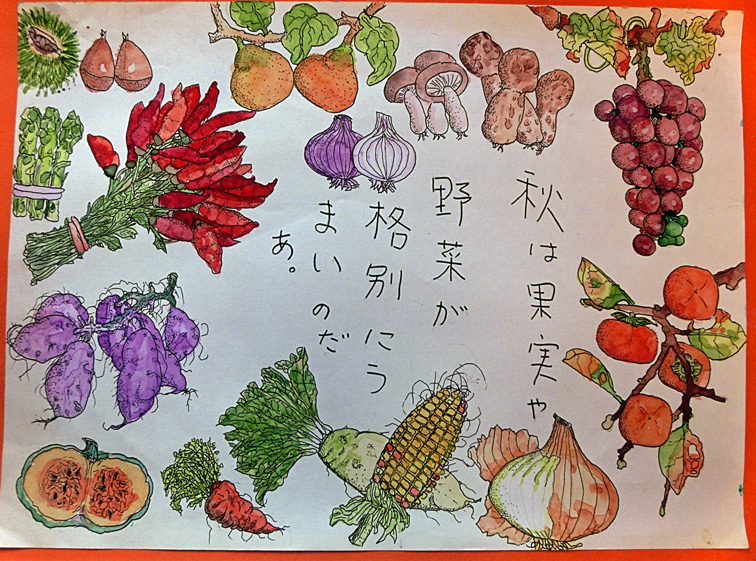 秋は果実や
野菜が
格別にう
まいのだ
あ。